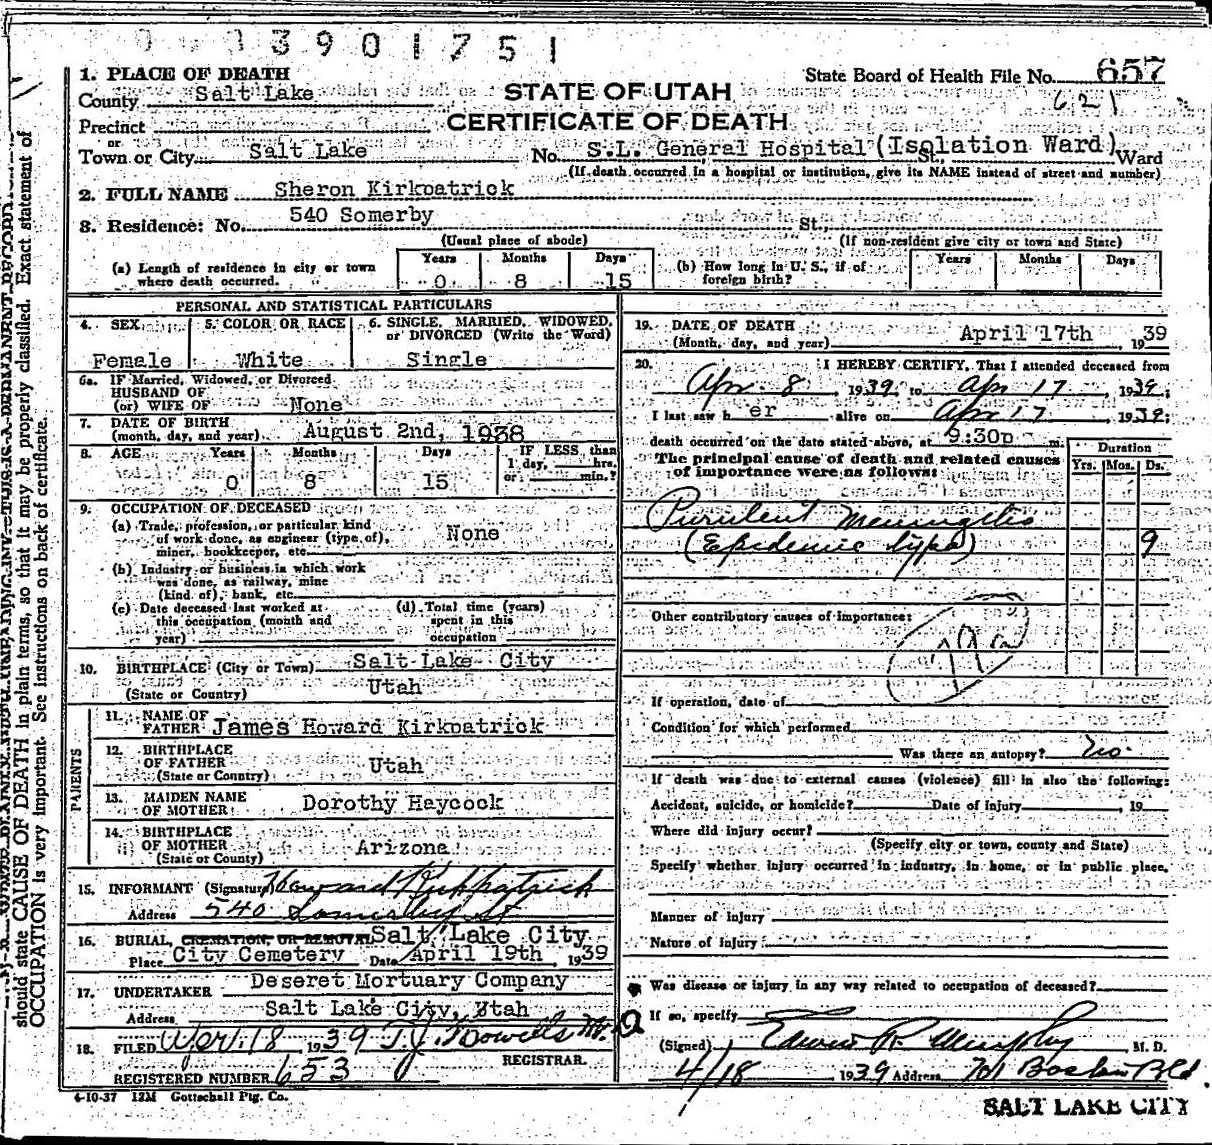 3901751
1. PLACE OF DEATH
State Board of Health File No. 657
County Salt Lake
STATE OF UTAH
621
Precinct
CERTIFICATE OF DEATH
or
Town or City Salt Lake No. S.L. General Hospital (Isolation Ward) St., Ward
(If death occurred in a hospital or institution, give its NAME instead of street and number)
2. FULL NAME Sheron Kirkpatrick
3. Residence: No. 540 Somerby St.
(Usual place of abode) (If non-resident give city or town and State)
(a) Length of residence in city or town where death occurred. Years 0 Months 8 Days 15
(b) How long in U. S., if of foreign birth? Years Months Days
PERSONAL AND STATISTICAL PARTICULARS
4. SEX Female
5. COLOR OR RACE White
6. SINGLE, MARRIED, WIDOWED, or DIVORCED (Write the Word) Single
6a. IF Married, Widowed, or Divorced
HUSBAND OF
(or) WIFE OF None
7. DATE OF BIRTH
(month, day, and year) August 2nd, 1938
8. AGE Years 0 Months 8 Days 15
IF LESS than
1 day, hrs.
or min.?
9. OCCUPATION OF DECEASED
(a) Trade, profession, or particular kind
of work done, as engineer (type of),
miner, bookkeeper, etc. None
(b) Industry or business in which work
was done, as railway, mine
(kind of), bank, etc.
(c) Date deceased last worked at
this occupation (month and
year)
(d) Total time (years)
spent in this
occupation
10. BIRTHPLACE (City or Town) Salt Lake City
(State or Country) Utah
PARENTS
11. NAME OF
FATHER James Howard Kirkpatrick
12. BIRTHPLACE
OF FATHER Utah
(State or Country)
13. MAIDEN NAME
OF MOTHER Dorothy Haycock
14. BIRTHPLACE
OF MOTHER Arizona
(State or County)
15. INFORMANT (Signature) Howard Kirkpatrick
Address 540 Somerby St
16. BURIAL, CREMATION, OR REMOVAL Salt Lake City
Place City Cemetery Date April 19th, 1939
17. UNDERTAKER Deseret Mortuary Company
Address Salt Lake City, Utah
18. FILED 18 1939 T.J. Howells
REGISTRAR.
REGISTERED NUMBER 653
4-10-37 12M Gottschall Ptg. Co.
19. DATE OF DEATH
(Month, day, and year) April 17th, 1939
20. I HEREBY CERTIFY, That I attended deceased from
Apr. 8, 1939, to Apr 17, 1939,
I last saw h er alive on Apr 17, 1939;
death occurred on the date stated above, at 9:30p m.
The principal cause of death and related causes
of importance were as follows:
Duration
Yrs. Mos. Ds.
Purulent Meningitis
(Epidemic type) 9
Other contributory causes of importance:
If operation, date of
Condition for which performed
Was there an autopsy? No.
If death was due to external causes (violence) fill in also the following:
Accident, suicide, or homicide? Date of injury, 19
Where did injury occur?
(Specify city or town, county and State)
Specify whether injury occurred in industry, in home, or in public place.
Manner of injury
Nature of injury
Was disease or injury in any way related to occupation of deceased?
If so, specify
(Signed) Edwin R. Murphy M. D.
4/18 1939 Address 701 Boston Bld.
SALT LAKE CITY
should state CAUSE OF DEATH in plain terms, so that it may be properly classified. Exact statement of
OCCUPATION is very important. See instructions on back of certificate.